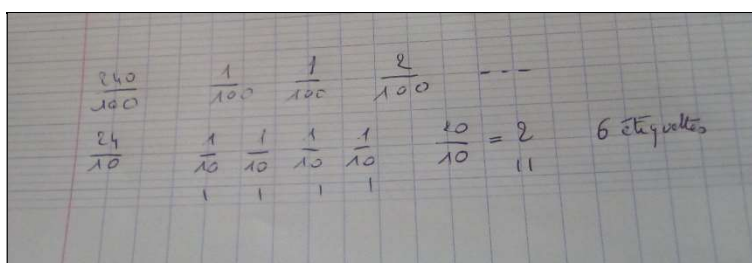 240/100 1/100 1/100 2/100 ---
24/10 1/10 1/10 1/10 1/10 20/10 = 2 6 étiquettes
ı ı ı ı ıı